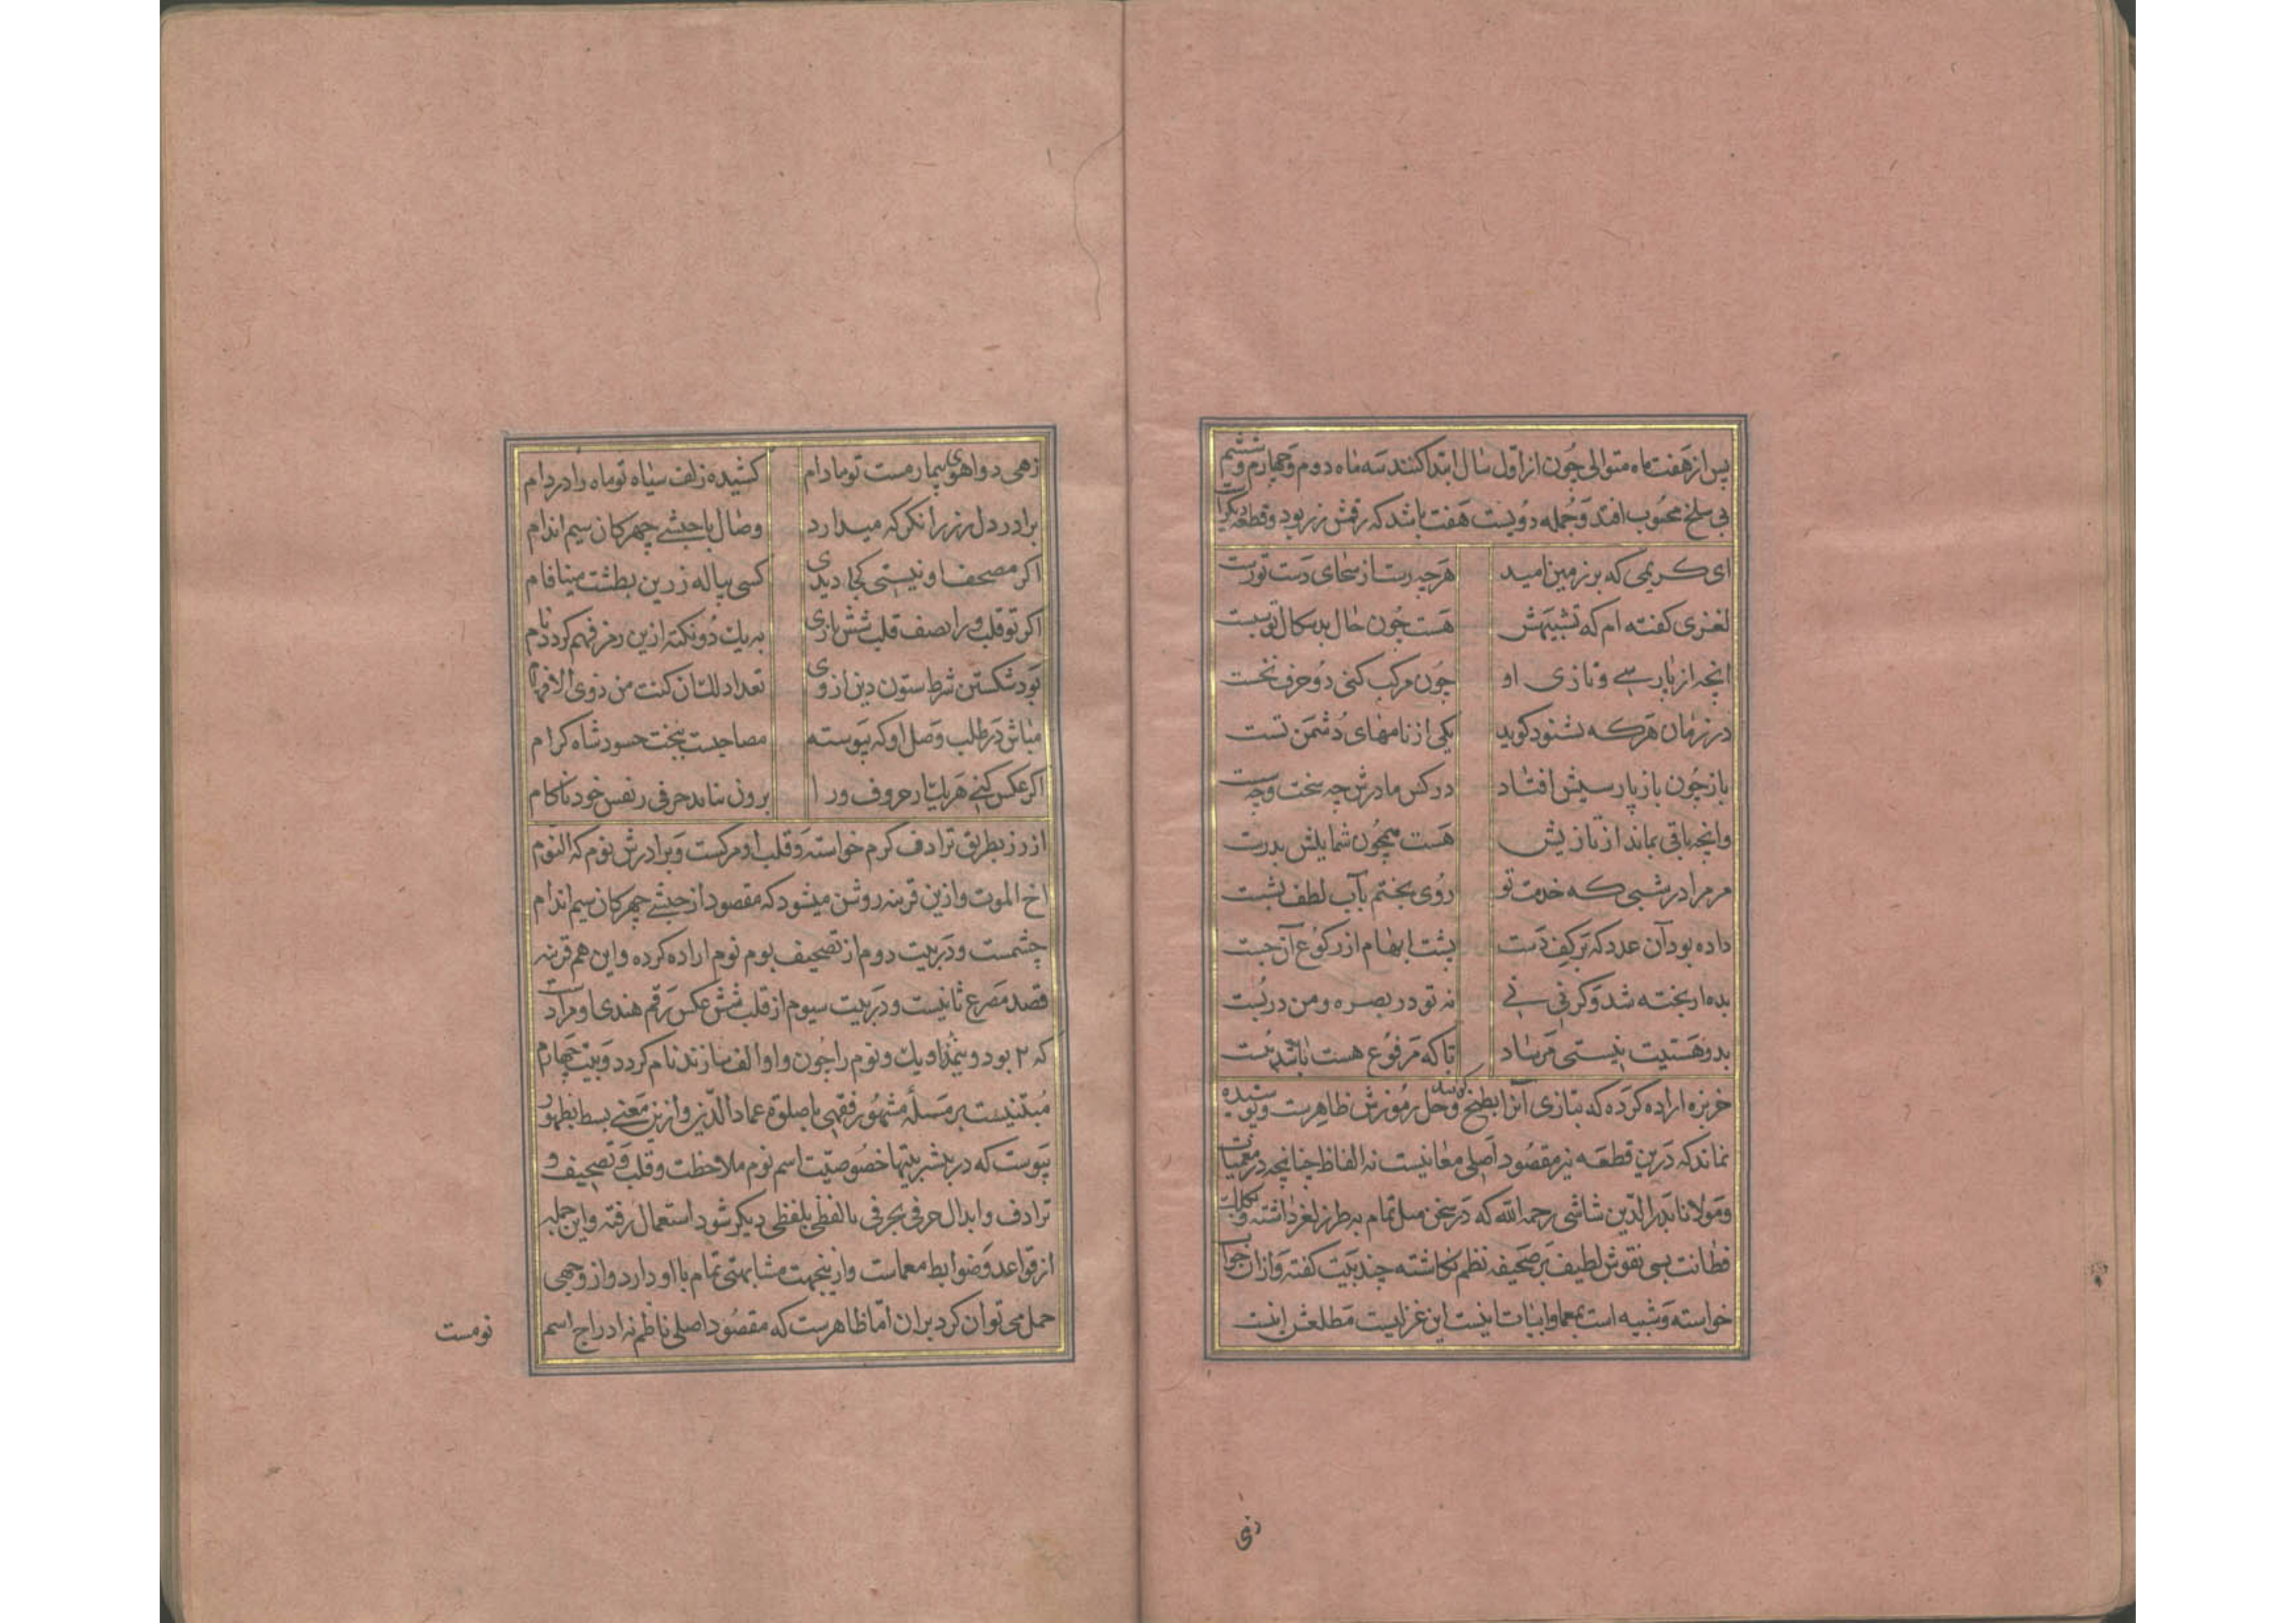 پس از هفت ماه متوالی چون از اول سال ابتدا کنند سه ماه دوم و چهارم و ششم
بی سلخ محسوب افتد و جمله دویست هفت باشد که رقمش زر بود و قطعه دیگر است
ای کریمی که بر زمین امید هرچه رست از سخای دست تو رست
لغزی گفته ام که تشبیهش هست چون حال بدسکال تو سست
انچه از پارسی و تازی او چون مرکب کنی دو حرف نخست
در زمان هرکه بشنود گوید یکی از نامهای دشمن تست
باز چون باز پارسیش افتاد در کس مادرش چه سخت و چه سست
وانچه باقی بماند از تازیش هست همچون شمایلش بدرست
مر مرا در شبی که خدمت تو روی بختم بآب لطف بشست
داده بود آن عدد که بر کف دست پشت ابهام از رکوع آن جست
بده ار پخته شد و کر نی نی نه تو در بصره و من در بست
بدو هستیت نیستی مرساد تا که مرفوع هست باشد
خربزه اراده کرده که بتازی آنرا بطیخ گویند و حل رموزش ظاهرست و پوشیده
نماند که درین قطعه نیز مقصود اصلی معانیست نه الفاظ چنانچه در معمیات
و مولانا بدر الدین شاشی رحمه الله که در سخن میل تمام به طرز لغز داشته و بکلک
فطانت بسی نقوش لطیف بر صحیفه نظم نگاشته چند بیت گفته و ازان جواب
خواسته و شبیه است بمعما و ابیات اینست این غزلیست مطلعش اینست
زهی
زهی دو اهوی بیمار مست تو مادام کشیده زلف سیاه تو ماه را در دام
برادر دل زر را نکر که میدارد وصال با حبشی چهرکان سیم اندام
اگر مصحف او نیستی کجا دیدی کسی پیاله زرین بطشت مینافام
اگر تو قلب ورا نصف قلب شش بازی به یک دو نکته ازین رمز فهم کردد نام
بود شکستن شرط ستون دین از وی تعداد للتان کنت من ذوی الافهام
مباش در طلب وصل او که پیوسته مصاحبست ببخت حسود شاه کرام
اگر عکس کنی هر یک از حروف ورا برون نیاید حرفی ز نفس خود ناکام
از زر بطریق ترادف کرم خواسته و قلب او مرکست و برادرش نوم که النوم
اخ الموت و ازین قرینه روشن میشود که مقصود از حبشی چهرکان سیم اندام
چشمست و در بیت دوم از تصحیف بوم نوم اراده کرده و این هم قرینه
قصد مصرع ثانیست و در بیت سیوم از قلب شش عکس رقم هندی او مرادست
که ۲ بود و یک و نوم را چون واو الف سازند نام کردد و بیت چهارم
مبتنیست بر مسله مشهور فقهی با صلوة عماد الدین و ازین معنی بسط بظهور
پیوست که در بیشتر بیتها خصوصیت اسم نوم ملاحظت و قلب و تصحیف و
ترادف و ابدال حرفی بحرفی یا لفظی بلفظی دیگر شود استعمال رفته و این جمله
از قواعد و ضوابط معماست و ازینجهت مشابهتی تمام با او دارد و از وجهی
حمل می توان کرد بران اما ظاهرست که مقصود اصلی ناظم نه ادراج اسم
نومست